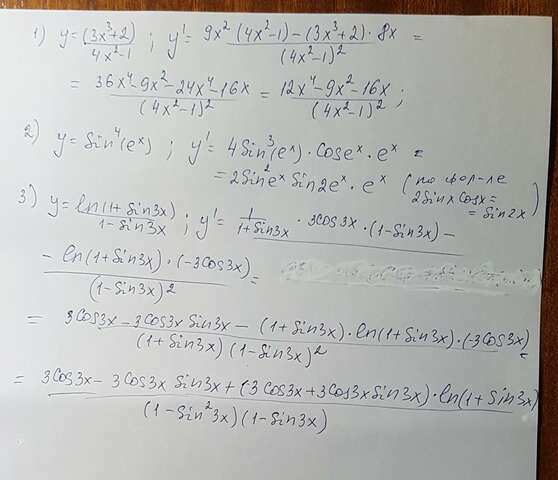 1) y = (3x³+2)/(4x²-1) ; y' = (9x²(4x²-1) - (3x³+2)·8x)/(4x²-1)² =
= (36x⁴-9x²-24x⁴-16x)/(4x²-1)² = (12x⁴-9x²-16x)/(4x²-1)² ;
2) y = Sin⁴(eˣ) ; y' = 4Sin³(eˣ)·Coseˣ·eˣ =
= 2Sin²eˣ Sin2eˣ·eˣ (по фор-ле 2Sinx Cosx = = Sin2x)
3) y = ln(1+Sin3x)/(1-Sin3x) ; y' = 1/(1+Sin3x) · 3Cos3x·(1-Sin3x) -
- ln(1+Sin3x)·(-3Cos3x)/(1-Sin3x)² =
= (3Cos3x - 3Cos3x Sin3x - (1+Sin3x)·ln(1+Sin3x)·(-3Cos3x))/((1+Sin3x)(1-Sin3x)²) =
= (3Cos3x - 3Cos3x Sin3x + (3Cos3x+3Cos3x Sin3x)·ln(1+Sin3x))/((1-Sin²3x)(1-Sin3x))